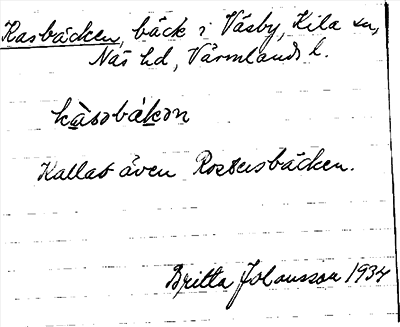 Kasbäcken, bäck i Väsby, Kila sn,
Näs hd, Värmlands l.
kàsbäkən
Kallas även Rossersbäcken.
Britta Johansson 1934